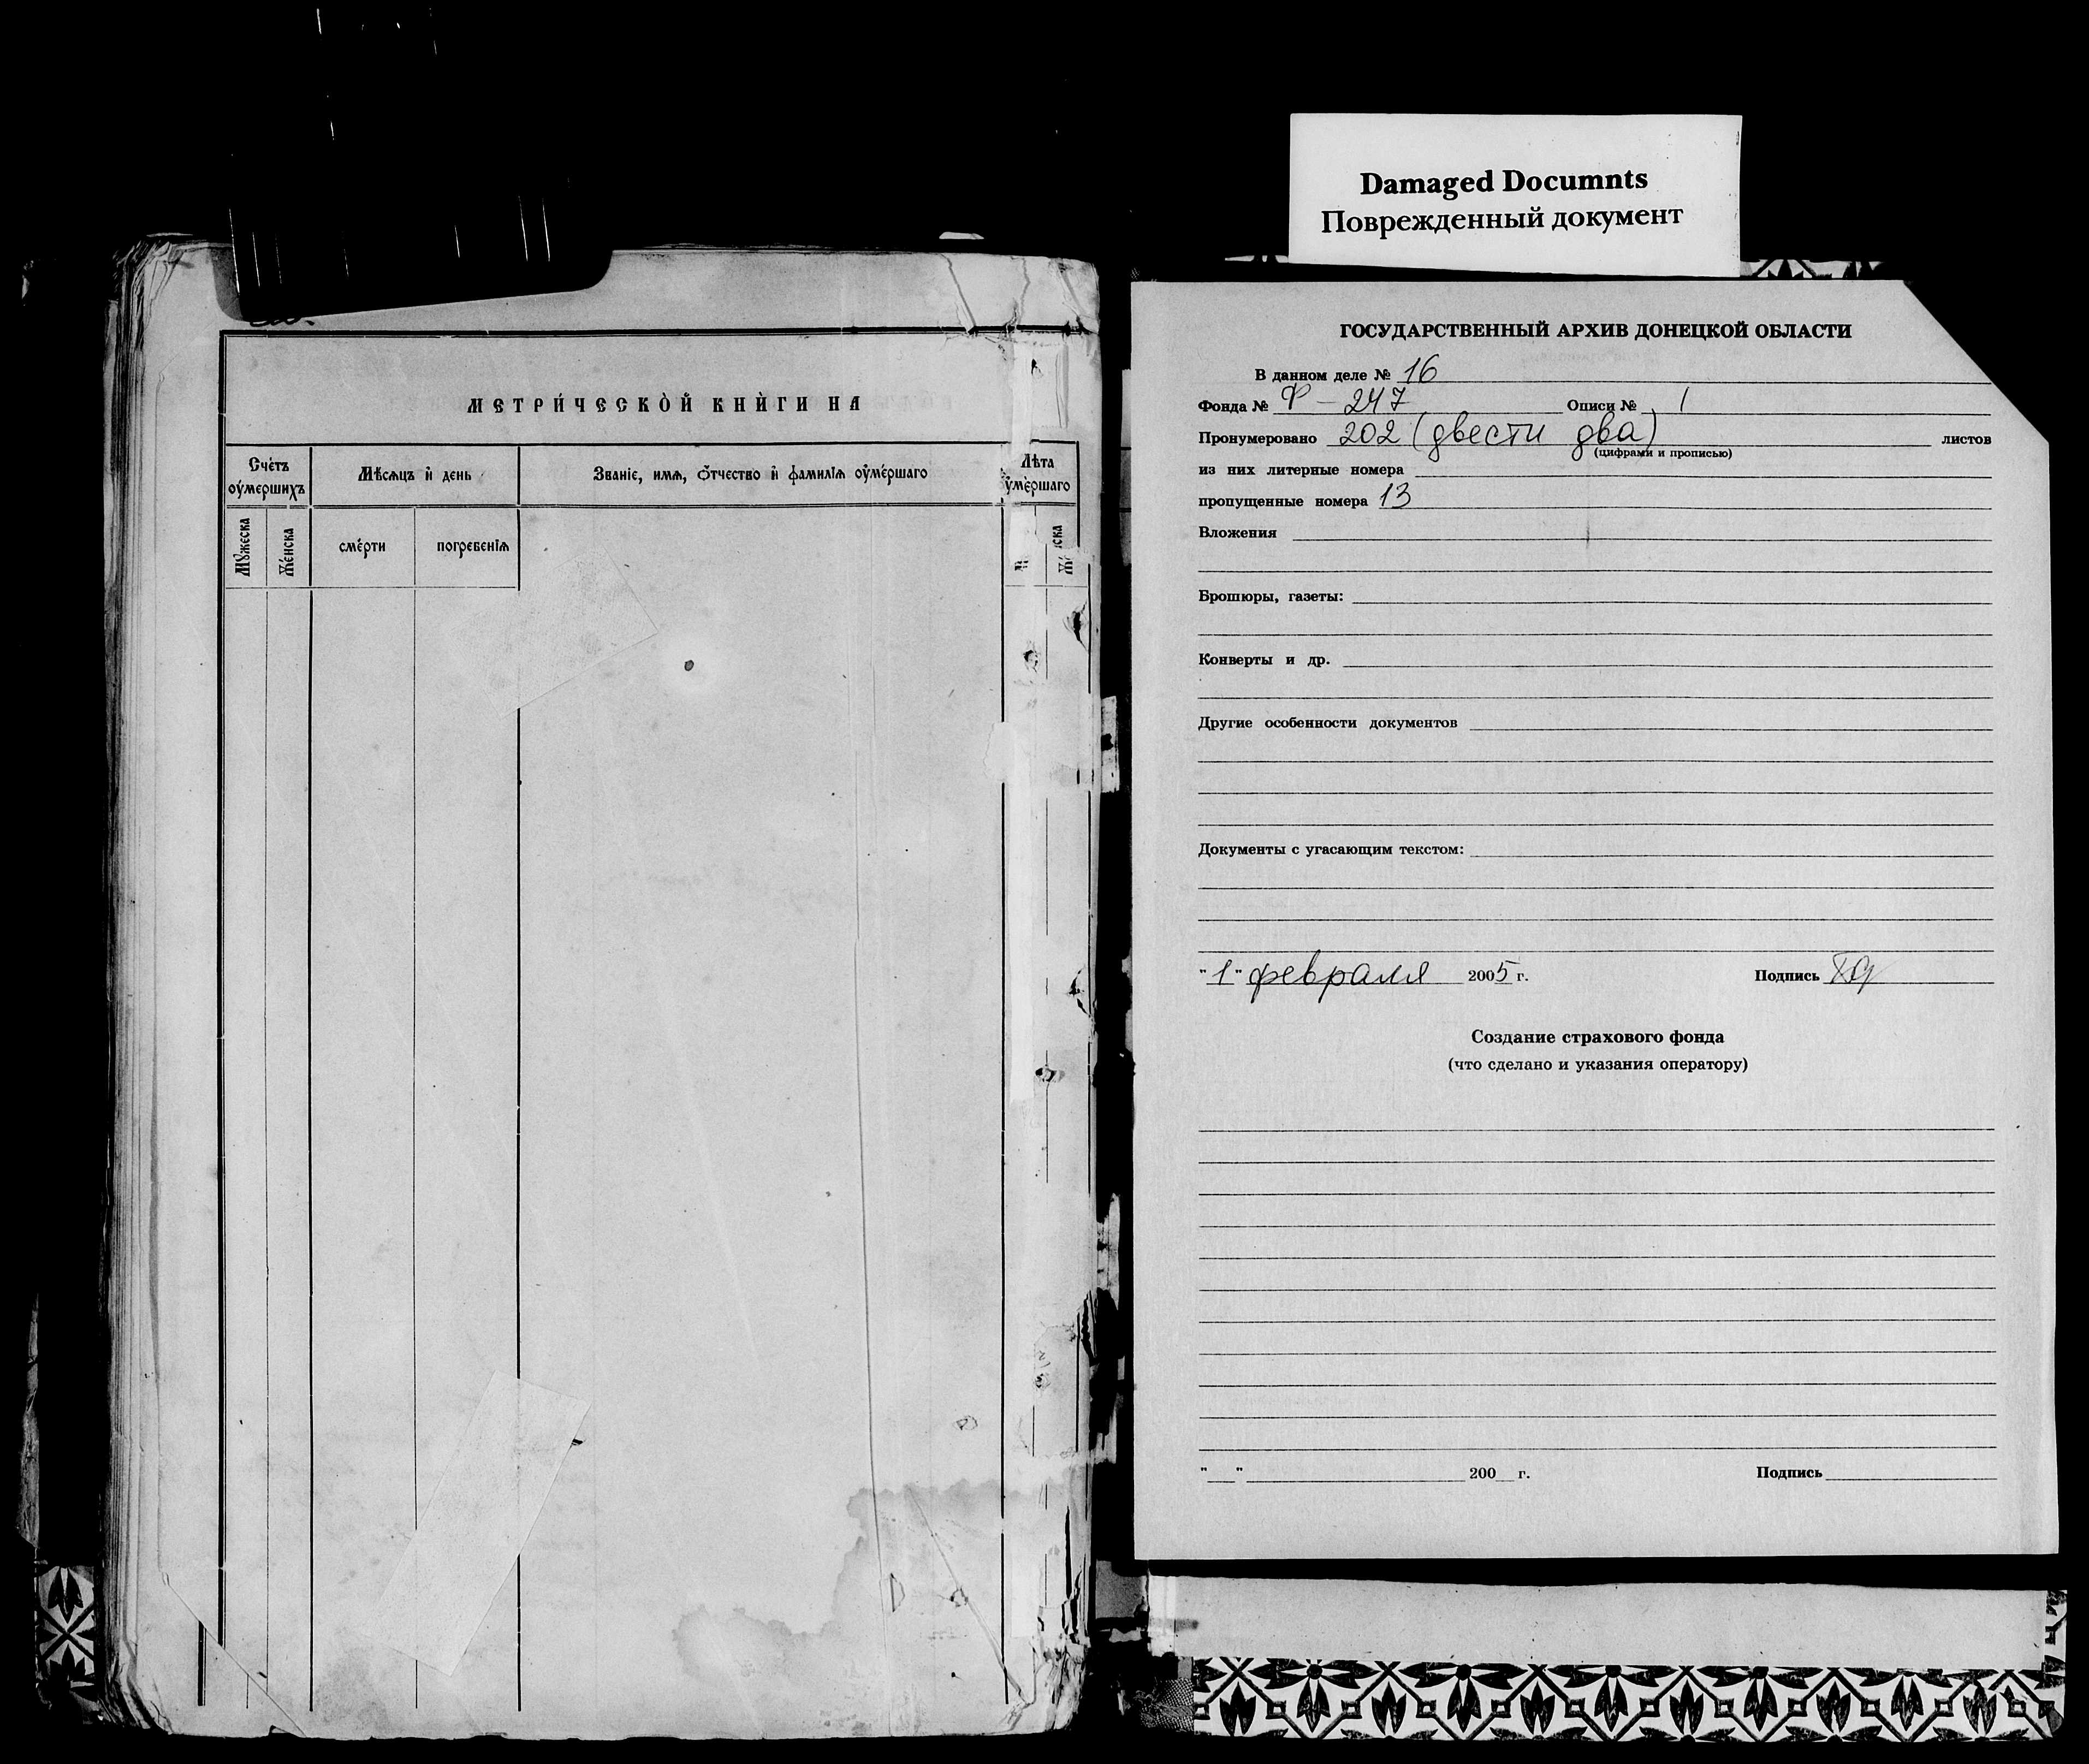 Damaged Documnts
Поврежденный документ
МЕТРИ́ЧЕСКО̀Й КНЍГИ НА
Сче́тъ оу҆мершихъ
Мѣсѧцъ и҆ день
Званїе, имѧ, ѻ҆́тчество и҆ фамилїѧ оу҆ме́ршаго
Лѣта оу҆ме́ршаго
Мꙋжеска
Же́нска
сме́рти
погребенїѧ
ГОСУДАРСТВЕННЫЙ АРХИВ ДОНЕЦКОЙ ОБЛАСТИ
В данном деле № 16
Фонда № Ф - 247 Описи № 1
Пронумеровано 202 (двести два) листов
(цифрами и прописью)
из них литерные номера
пропущенные номера 13
Вложения
Брошюры, газеты:
Конверты и др.
Другие особенности документов
Документы с угасающим текстом:
"1" февраля 2005 г. Подпись
Создание страхового фонда
(что сделано и указания оператору)
"__" 200__ г. Подпись